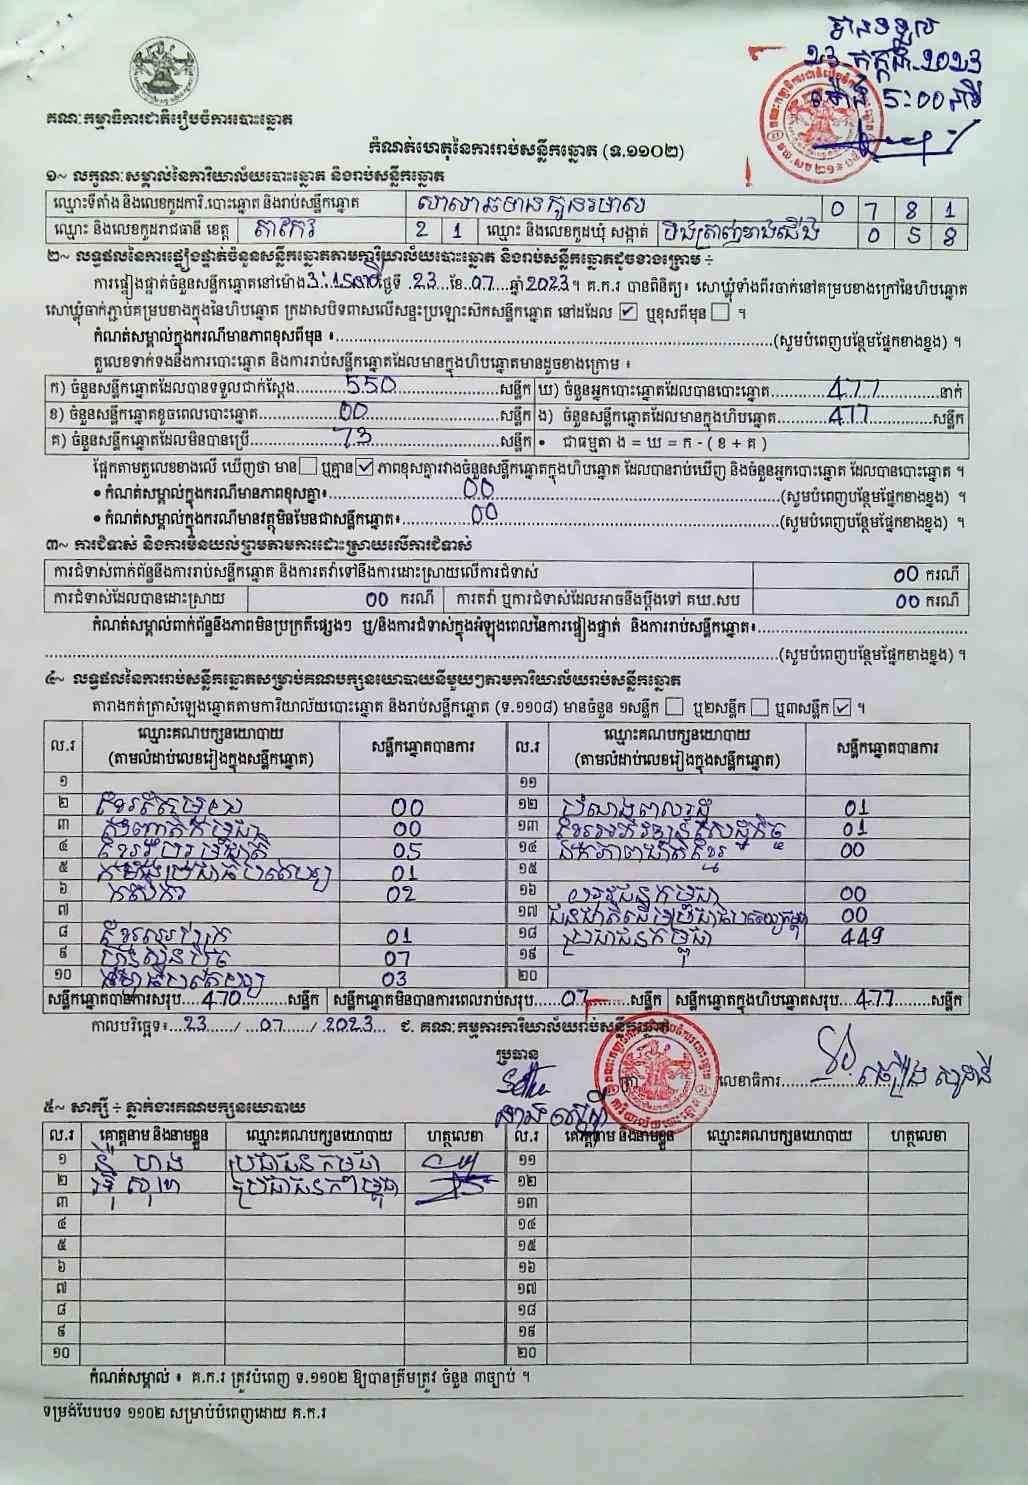 បានទទួល
23 កក្កដា 2023
ម៉ោង 5:00 នាទី
គណៈកម្មាធិការជាតិរៀបចំការបោះឆ្នោត
កំណត់ហេតុនៃការរាប់សន្លឹកឆ្នោត (ទ.១១០២)
១~ លក្ខណៈសម្គាល់នៃការិយាល័យបោះឆ្នោត និងរាប់សន្លឹកឆ្នោត
ឈ្មោះទីតាំង និងលេខកូដការិ.បោះឆ្នោត និងរាប់សន្លឹកឆ្នោត 0 7 8 1
ឈ្មោះ និងលេខកូដរាជធានី ខេត្ត តាកែវ 2 1 ឈ្មោះ និងលេខកូដឃុំ សង្កាត់ ត្រាំងខាងជើង 0 5 8
២~ លទ្ធផលនៃការផ្ទៀងផ្ទាត់ចំនួនសន្លឹកឆ្នោតតាមការិយាល័យបោះឆ្នោត និងរាប់សន្លឹកឆ្នោតដូចខាងក្រោម ÷
ការផ្ទៀងផ្ទាត់ចំនួនសន្លឹកឆ្នោតនៅម៉ោង 3:15នាទី ថ្ងៃទី 23 ខែ 07 ឆ្នាំ 2023។ គ.ក.រ បានពិនិត្យ៖ សោឃ្លុំទាំងពីរចាក់នៅគម្របខាងក្រៅនៃហិបឆ្នោត
សោឃ្លុំចាក់ភ្ជាប់គម្របខាងក្នុងនៃហិបឆ្នោត ក្រដាសបិទពាសលើសន្ទះប្រឡោះស៊កសន្លឹកឆ្នោត នៅដដែល ☑ ឬខុសពីមុន ☐ ។
កំណត់សម្គាល់ក្នុងករណីមានភាពខុសពីមុន ៖ (សូមបំពេញបន្ថែមផ្នែកខាងខ្នង) ។
តួលេខទាក់ទងនឹងការបោះឆ្នោត និងការរាប់សន្លឹកឆ្នោតដែលមានក្នុងហិបឆ្នោតមានដូចខាងក្រោម ៖
ក) ចំនួនសន្លឹកឆ្នោតដែលបានទទួលជាក់ស្តែង 550 សន្លឹក ឃ) ចំនួនអ្នកបោះឆ្នោតដែលបានបោះឆ្នោត 477 នាក់
ខ) ចំនួនសន្លឹកឆ្នោតខូចពេលបោះឆ្នោត 00 សន្លឹក ង) ចំនួនសន្លឹកឆ្នោតដែលមានក្នុងហិបឆ្នោត 477 សន្លឹក
គ) ចំនួនសន្លឹកឆ្នោតដែលមិនបានប្រើ 73 សន្លឹក • ជាធម្មតា ង = ឃ = ក - ( ខ + គ )
ផ្អែកតាមតួលេខខាងលើ ឃើញថា មាន ☐ ឬគ្មាន ☑ ភាពខុសគ្នារវាងចំនួនសន្លឹកឆ្នោតក្នុងហិបឆ្នោត ដែលបានរាប់ឃើញ និងចំនួនអ្នកបោះឆ្នោត ដែលបានបោះឆ្នោត ។
• កំណត់សម្គាល់ក្នុងករណីមានភាពខុសគ្នា៖ 00 (សូមបំពេញបន្ថែមផ្នែកខាងខ្នង) ។
• កំណត់សម្គាល់ក្នុងករណីមានវត្ថុមិនមែនជាសន្លឹកឆ្នោត៖ 00 (សូមបំពេញបន្ថែមផ្នែកខាងខ្នង) ។
៣~ ការជំទាស់ និងការមិនយល់ព្រមតាមការដោះស្រាយលើការជំទាស់
ការជំទាស់ពាក់ព័ន្ធនឹងការរាប់សន្លឹកឆ្នោត និងការតវ៉ាទៅនឹងការដោះស្រាយលើការជំទាស់ 00 ករណី
ការជំទាស់ដែលបានដោះស្រាយ 00 ករណី ការតវ៉ា ឬការជំទាស់ដែលអាចនឹងប្តឹងទៅ គឃ.សប 00 ករណី
កំណត់សម្គាល់ពាក់ព័ន្ធនឹងភាពមិនប្រក្រតីផ្សេងៗ ឬ/និងការជំទាស់ក្នុងអំឡុងពេលនៃការផ្ទៀងផ្ទាត់ និងការរាប់សន្លឹកឆ្នោត៖
(សូមបំពេញបន្ថែមផ្នែកខាងខ្នង) ។
៤~ លទ្ធផលនៃការរាប់សន្លឹកឆ្នោតសម្រាប់គណបក្សនយោបាយនីមួយៗតាមការិយាល័យរាប់សន្លឹកឆ្នោត
តារាងកត់ត្រាសំឡេងឆ្នោតតាមការិយាល័យបោះឆ្នោត និងរាប់សន្លឹកឆ្នោត (ទ.១១០៨) មានចំនួន ១សន្លឹក ☐ ឬ២សន្លឹក ☐ ឬ៣សន្លឹក ☑ ។
ល.រ ឈ្មោះគណបក្សនយោបាយ (តាមលំដាប់លេខរៀងក្នុងសន្លឹកឆ្នោត) សន្លឹកឆ្នោតបានការ ល.រ ឈ្មោះគណបក្សនយោបាយ (តាមលំដាប់លេខរៀងក្នុងសន្លឹកឆ្នោត) សន្លឹកឆ្នោតបានការ
១ ១១
២ 00 ១២ 01
៣ 00 ១៣ ខ្មែរអភិវឌ្ឍន៍សេដ្ឋកិច្ច 01
៤ ខ្មែររួបរួមជាតិ 05 ១៤ ឯកភាពជាតិខ្មែរ 00
៥ កម្ពុជា 01 ១៥
៦ កសិករ 02 ១៦ យុវជនកម្ពុជា 00
៧ ១៧ ជនជាតិដើមប្រជាធិបតេយ្យកម្ពុជា 00
៨ 01 ១៨ ប្រជាជនកម្ពុជា 449
៩ ហ៊្វុនស៊ិនប៉ិច 07 ១៩
១០ 03 ២០
សន្លឹកឆ្នោតបានការសរុប 470 សន្លឹក សន្លឹកឆ្នោតមិនបានការពេលរាប់សរុប 07 សន្លឹក សន្លឹកឆ្នោតក្នុងហិបឆ្នោតសរុប 477 សន្លឹក
កាលបរិច្ឆេទ៖ 23 / 07 / 2023 ជ. គណៈកម្មការការិយាល័យរាប់សន្លឹកឆ្នោត
ប្រធាន
ត្រា លេខាធិការ
៥~ សាក្សី ÷ ភ្នាក់ងារគណបក្សនយោបាយ
ល.រ គោត្តនាម និងនាមខ្លួន ឈ្មោះគណបក្សនយោបាយ ហត្ថលេខា ល.រ គោត្តនាម និងនាមខ្លួន ឈ្មោះគណបក្សនយោបាយ ហត្ថលេខា
១ ប្រជាជនកម្ពុជា ១១
២ ប្រជាជនកម្ពុជា ១២
៣ ១៣
៤ ១៤
៥ ១៥
៦ ១៦
៧ ១៧
៨ ១៨
៩ ១៩
១០ ២០
កំណត់សម្គាល់ ៖ គ.ក.រ ត្រូវបំពេញ ទ.១១០២ ឱ្យបានត្រឹមត្រូវ ចំនួន ៣ច្បាប់ ។
ទម្រង់បែបបទ ១១០២ សម្រាប់បំពេញដោយ គ.ក.រ